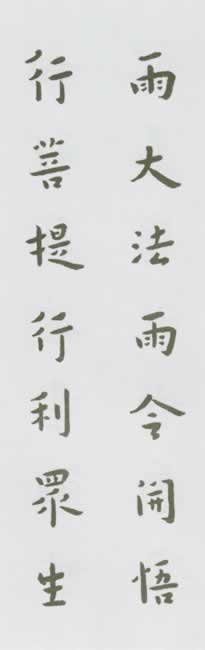 雨大法雨令開悟
行菩提行利眾生